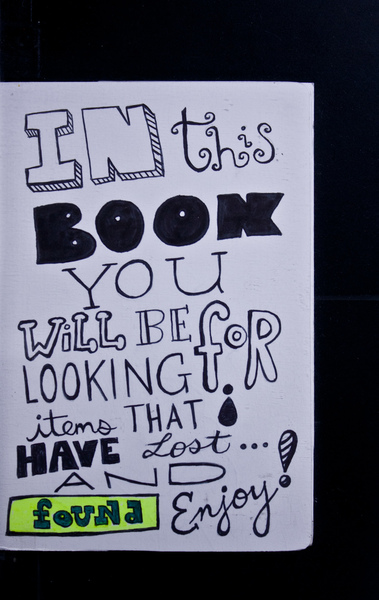 IN this
BOOK
YOU
WiLL BE
LOOKING foR
items THAT i
HAVE Lost...
AND
found Enjoy!